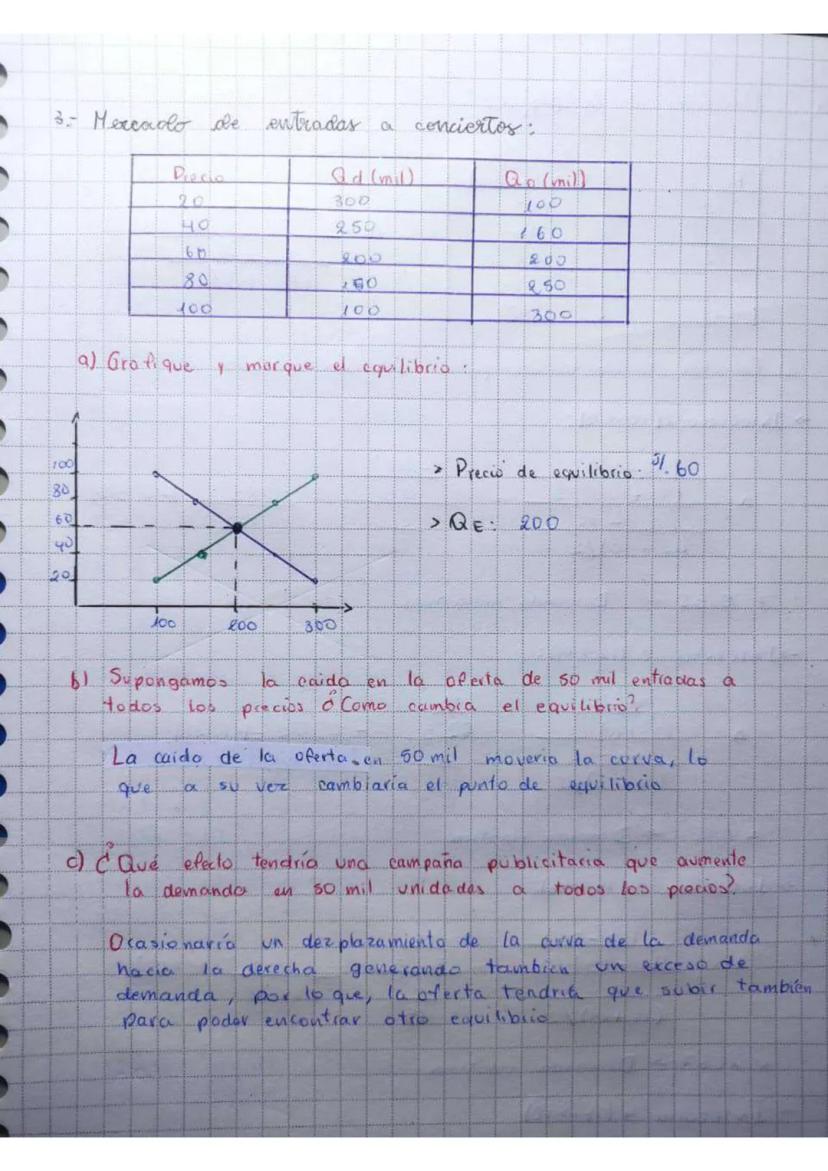 3.- Mercado de entradas a conciertos:
Precio Qd (mil) Qo (mil)
20 300 100
40 250 160
60 200 200
80 150 250
100 100 300
a) Grafique y marque el equilibrio:
100
80
60
40
20
100 200 300
> Precio de equilibrio: S/. 60
> QE: 200
b) Supongamos la caida en la oferta de 50 mil entradas a
todos los precios ¿Como cambia el equilibrio?
La caida de la oferta en 50 mil moveria la curva, lo
que a su vez cambiaría el punto de equilibrio
c) ¿Qué efecto tendría una campaña publicitaria que aumente
la demanda en 50 mil unidades a todos los precios?
Ocasionaría un dezplazamiento de la curva de la demanda
hacia la derecha generando tambien un exceso de
demanda, por lo que, la oferta tendría que subir también
para poder encontrar otro equilibrio